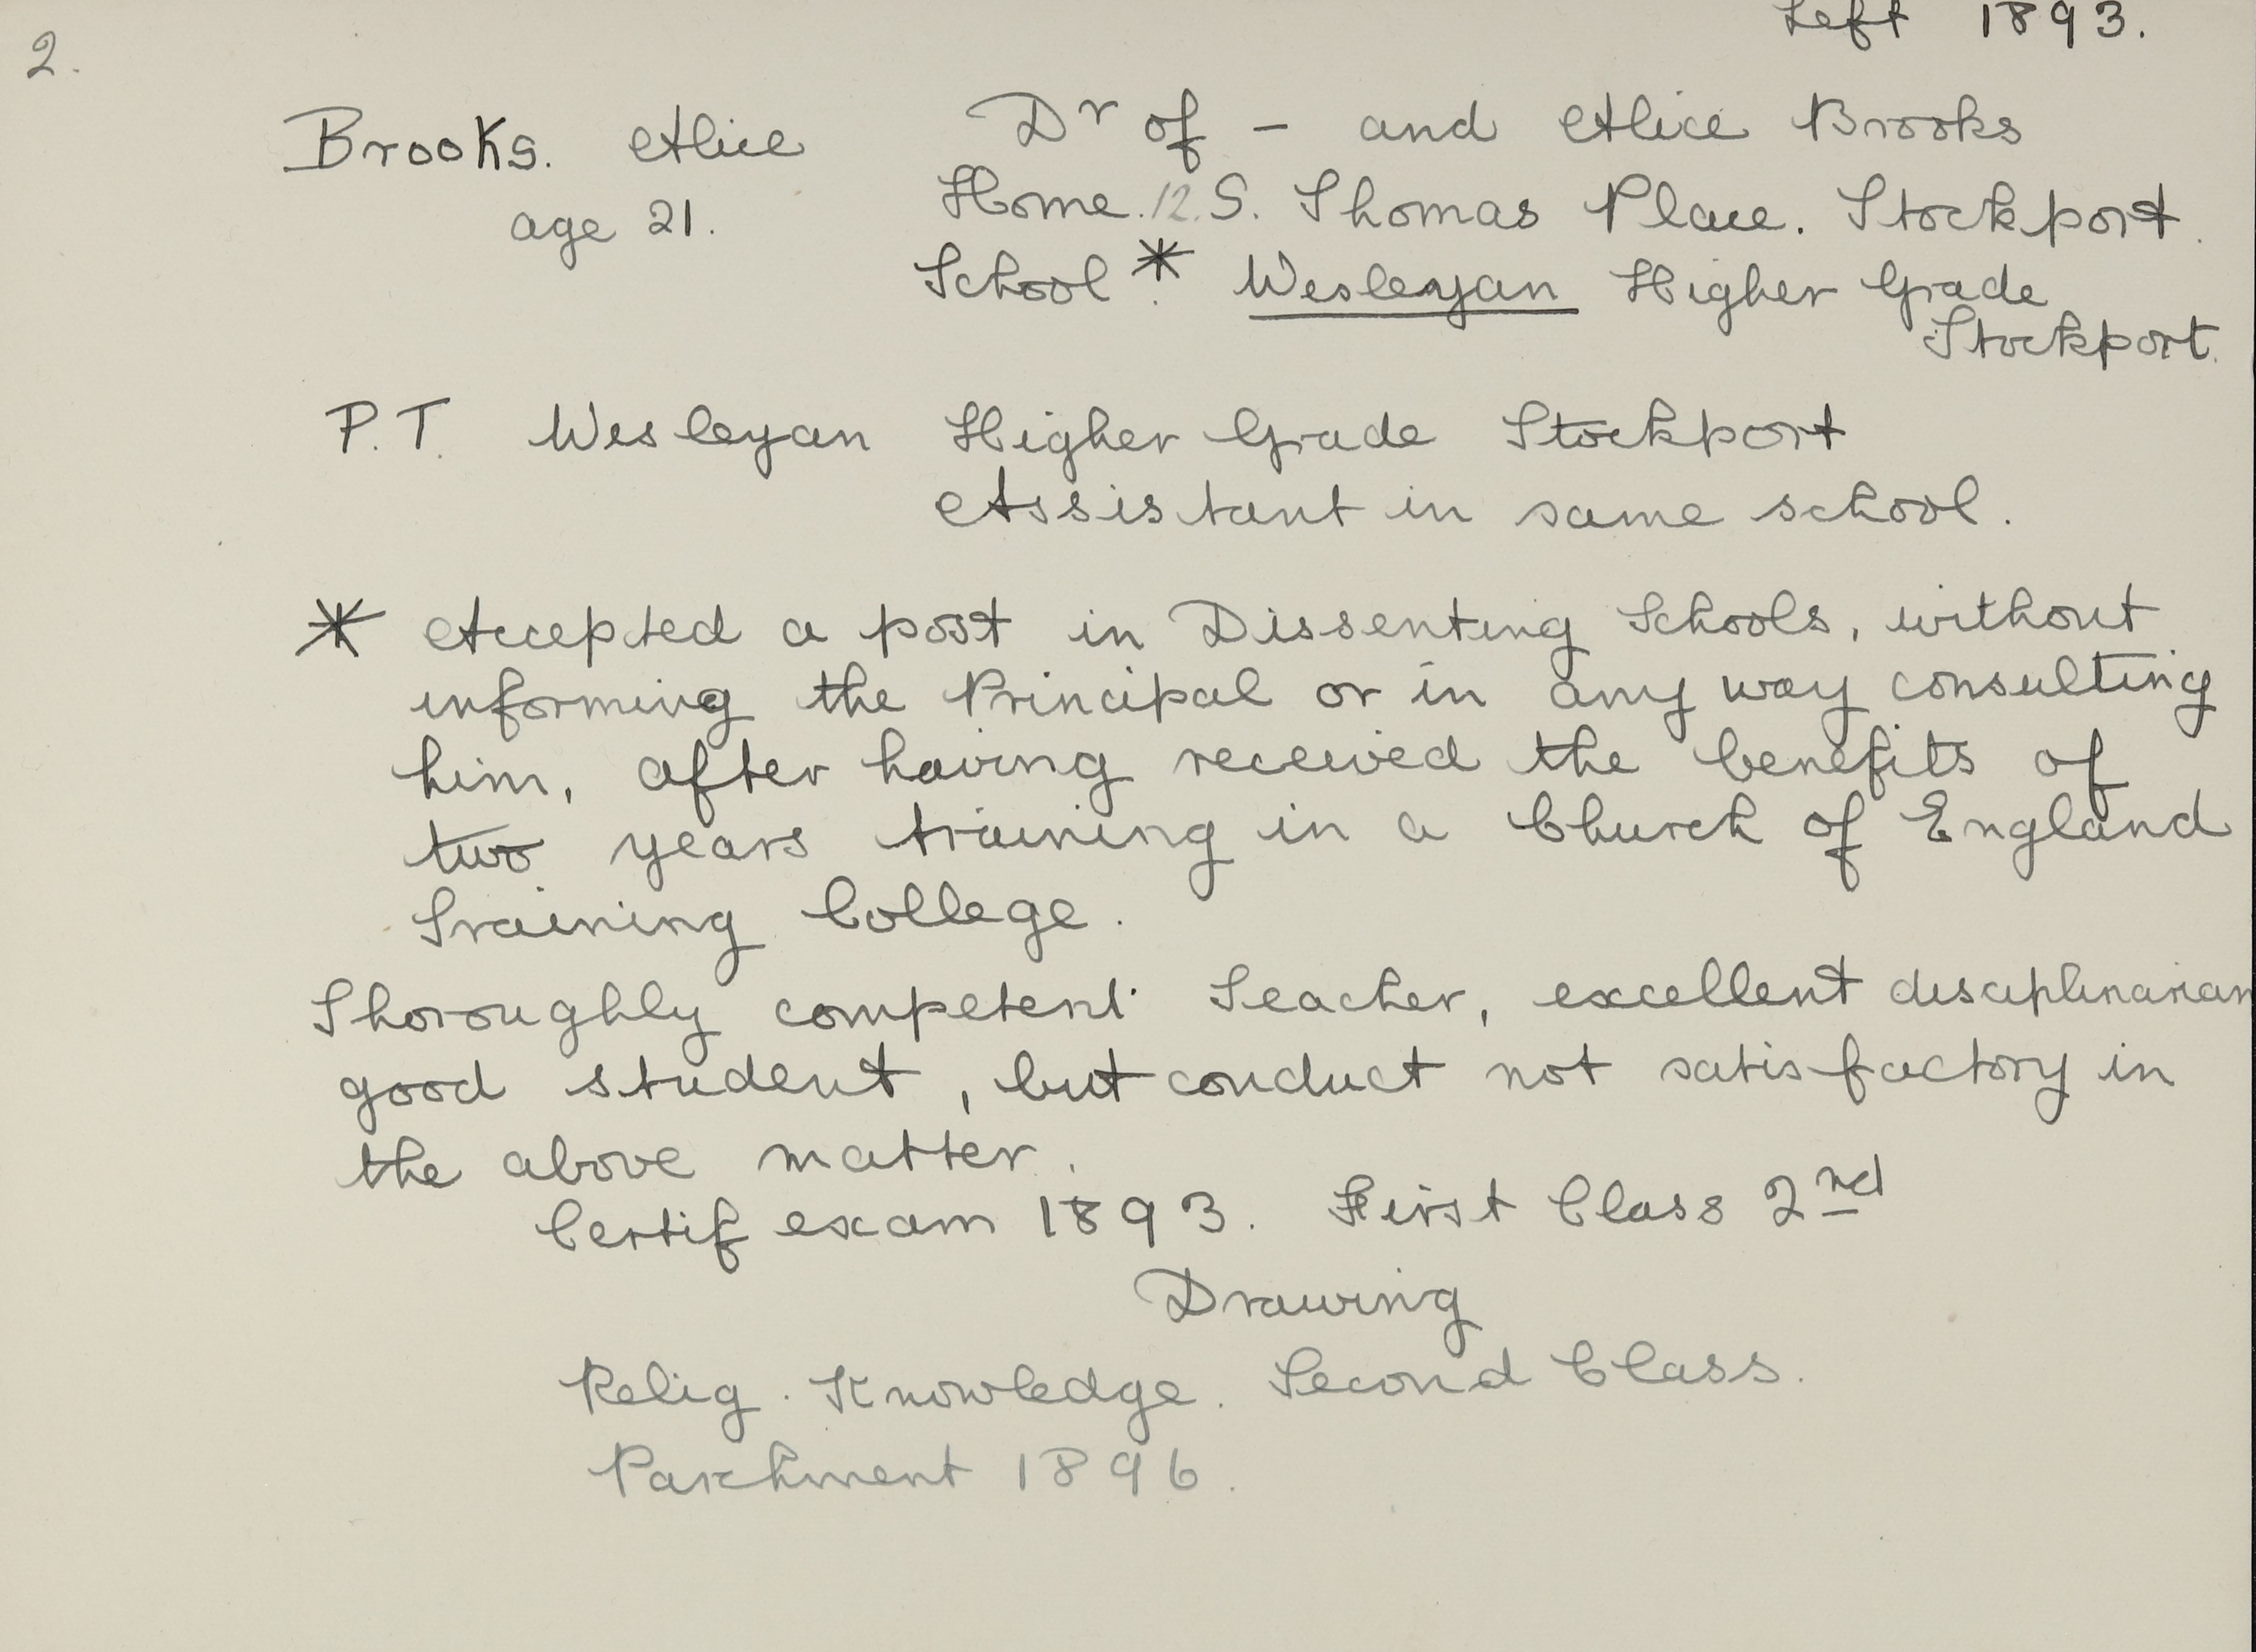 Left 1893.
2.
Brooks. Alice Dr of – and Alice Brooks
age 21. Home. 12. S. Thomas Place. Stockport.
School * Wesleyan Higher Grade
Stockport.
P.T. Wesleyan Higher Grade Stockport
Assistant in same school.
* Accepted a post in Dissenting Schools, without
informing the Principal or in any way consulting
him, after having received the benefits of
two years training in a Church of England
Training College.
Thoroughly competent Teacher, excellent disciplinarian
good student, but conduct not satisfactory in
the above matter.
Certif exam 1893. First Class 2nd
Drawing
Relig. Knowledge. Second Class.
Parchment 1896.